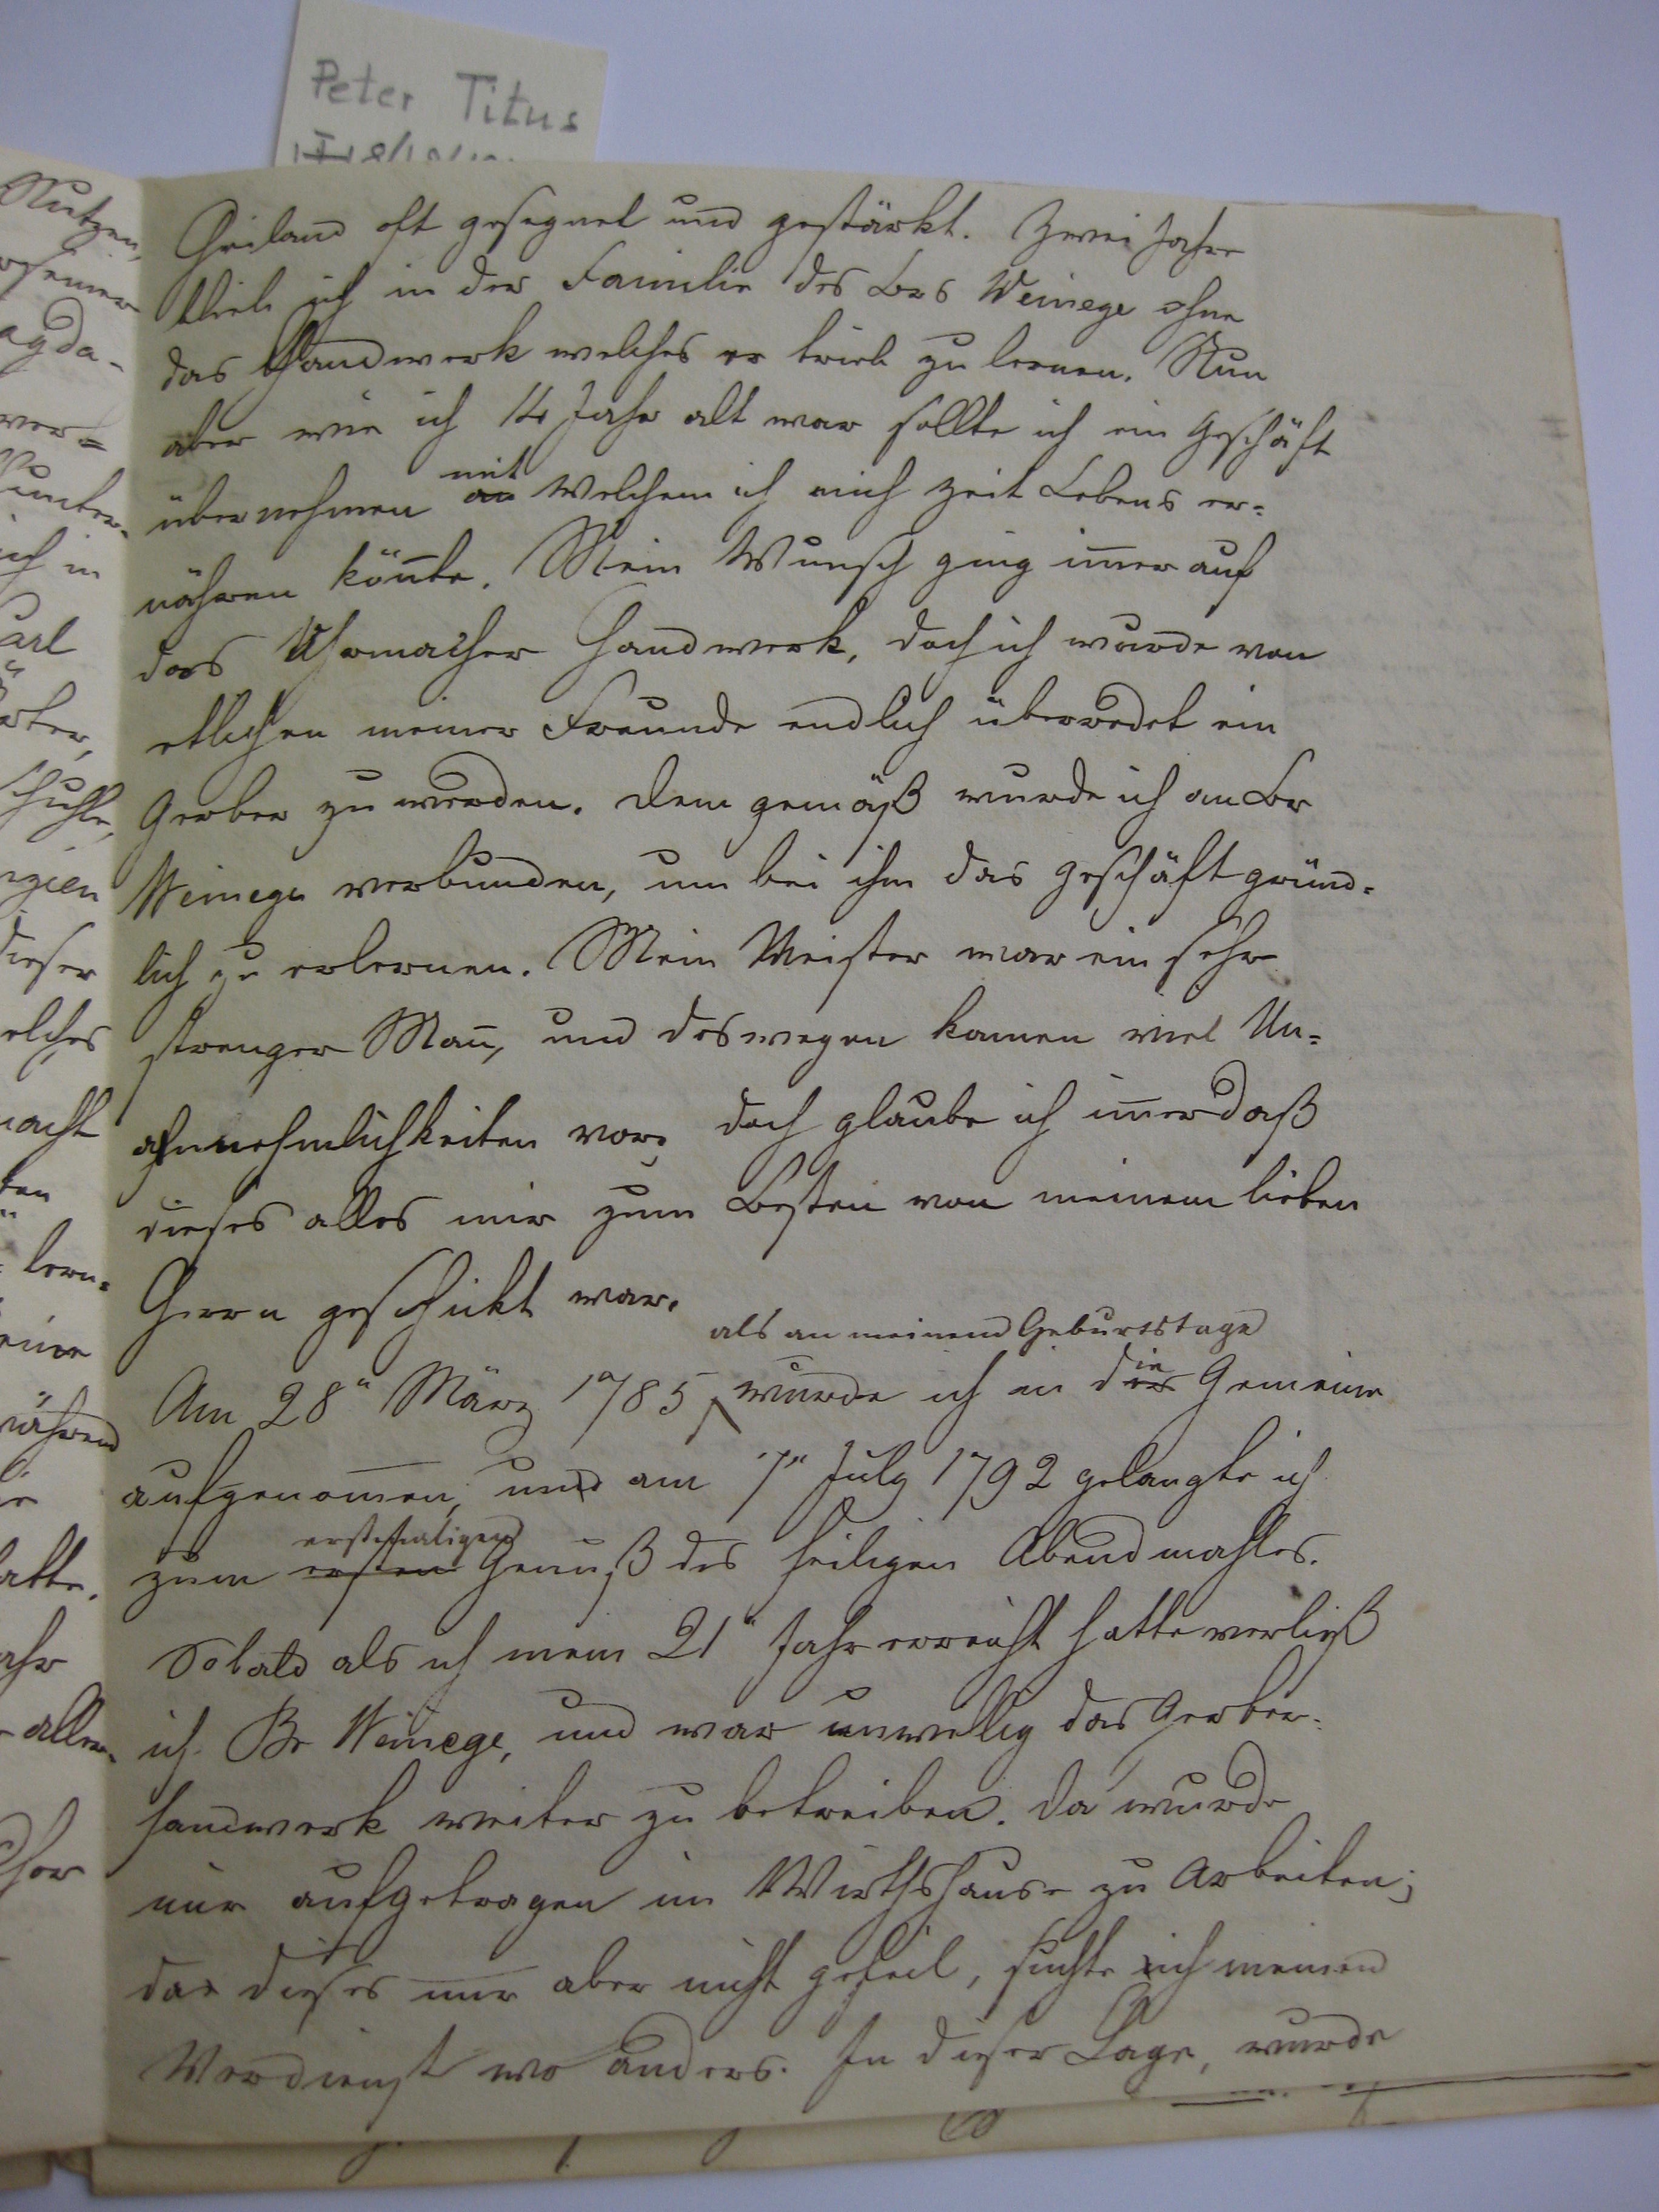 Peter Titus
Heiland oft gesegnet und gestärkt. Zwei Jahre
blieb ich in der Familie des Brs Weinege ohne
das Handwerk welches er trieb zu lernen. Nun
aber wie ich 14 Jahr alt war sollte ich ein Geschäft
übernehmen mit welchem ich mich Zeit Lebens er=
nähren kön̅te. Mein Wunsch ging im̅er auf
das Uhrmacher Handwerk, doch ich wurde von
etlichen meiner Freunde endlich überredet ein
Gerber zu werden. Dem gemäß wurde ich an Br
Weinege verbunden, um bei ihm das Geschäft gründ=
lich zu erlernen. Mein Meister war ein sehr
strenger Man̅, und deswegen kamen viel Un=
annehmlichkeiten vor, doch glaube ich im̅er daß
dieses alles mir zum Besten von meinem lieben
Herrn geschickt war.
als an meinem Geburtstage
Am 28" März 1785, wurde ich in die Gemeine
aufgenom̅en, und am 7" July 1792 gelangte ich
zum erstmaligen Genuß des heiligen Abendmahles.
Sobald als ich mein 21" Jahr erreicht hatte verließ
ich Br Weinege, und war unwillig das Gerber=
handwerk weiter zu betreiben. Da wurde
mir aufgetragen im Wirthshause zu Arbeiten;
da dieses mir aber nicht gefiel, suchte ich meinen
Verdienst wo anders. In dieser Lage, wurde